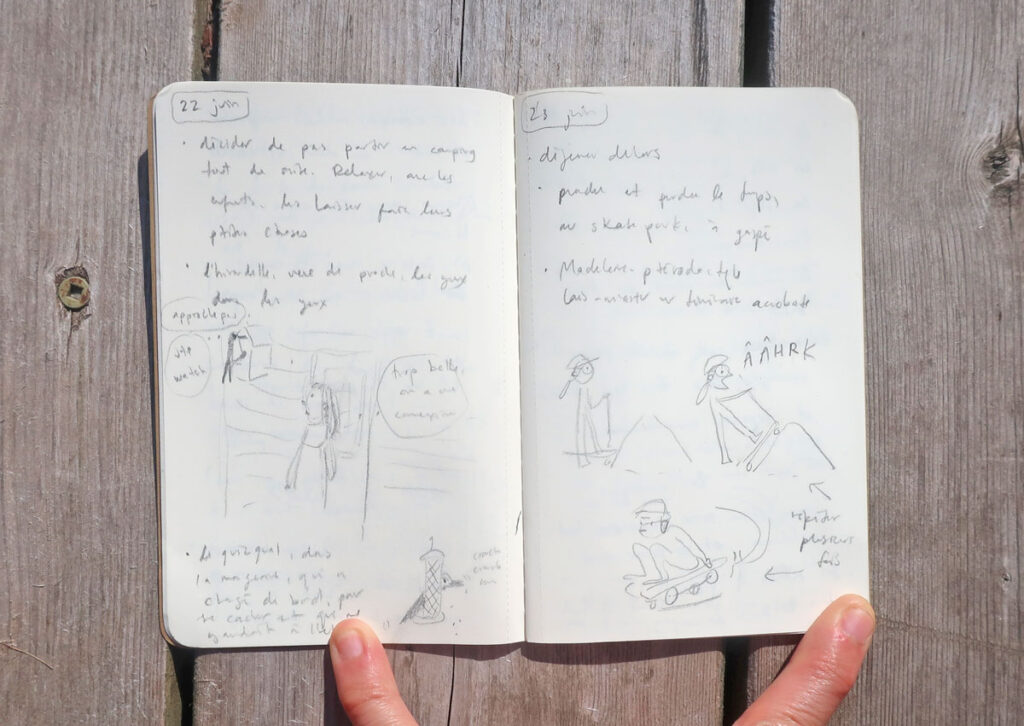 22 juin
• décider de pas partir en camping
tout de suite. Relaxer, avec les
enfants, les laisser faire leurs
petites choses
• l'hirondelle, vue de proche, les yeux
dans les yeux
approche pas
watch
trop belle,
on a une
connexion
• Le quiscale, dans
la mangeoire, qui a
changé de bord, pour
se cacher
23 juin
• déjeuner dehors
• prendre et perdre le temps,
au skate park, à gaspé
• Madeleine-ptérodactyle
Lais-
acrobate
ÂÂHRK
répéter
plusieurs
fois